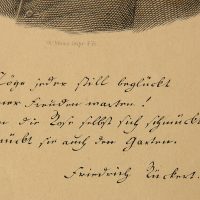 Möge jeder still beglückt
ner Freuden warten!
n die Rose selbst sich schmückt
mückt sie auch den Garten.
Friedrich Rückert.